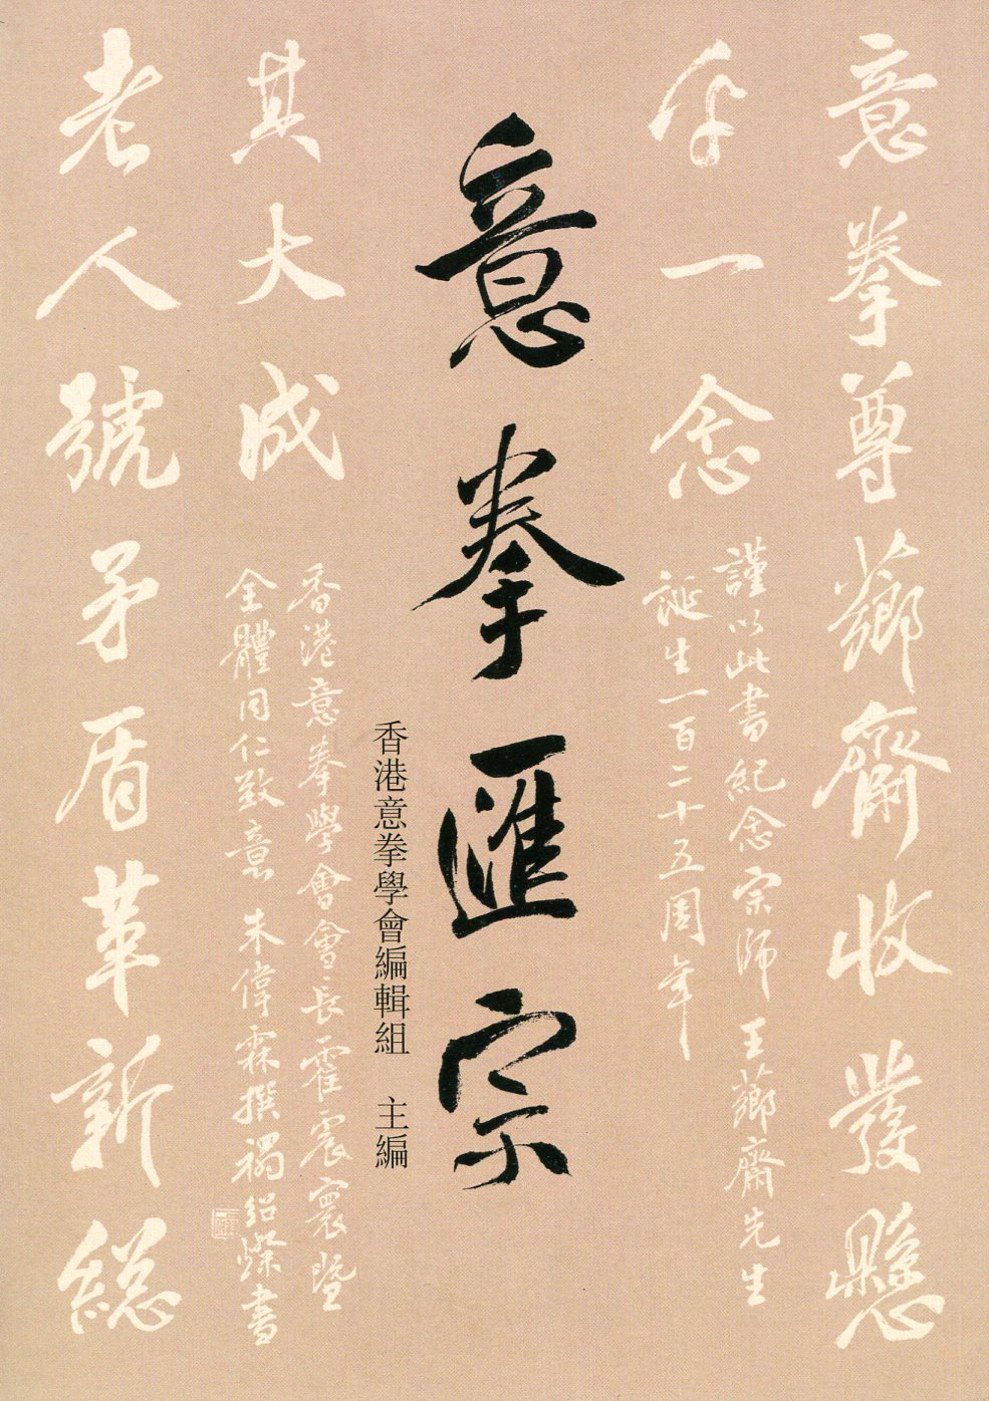 意拳尊薌齋收發懸
乎一念
謹以此書紀念宗師 王薌齋先生
誕生一百二十五周年
意拳匯宗
香港意拳學會編輯組 主編
老人號矛盾革新總
其大成
香港意拳學會會長霍震寰暨
全體同仁致意 朱偉霖撰 禤紹燦書